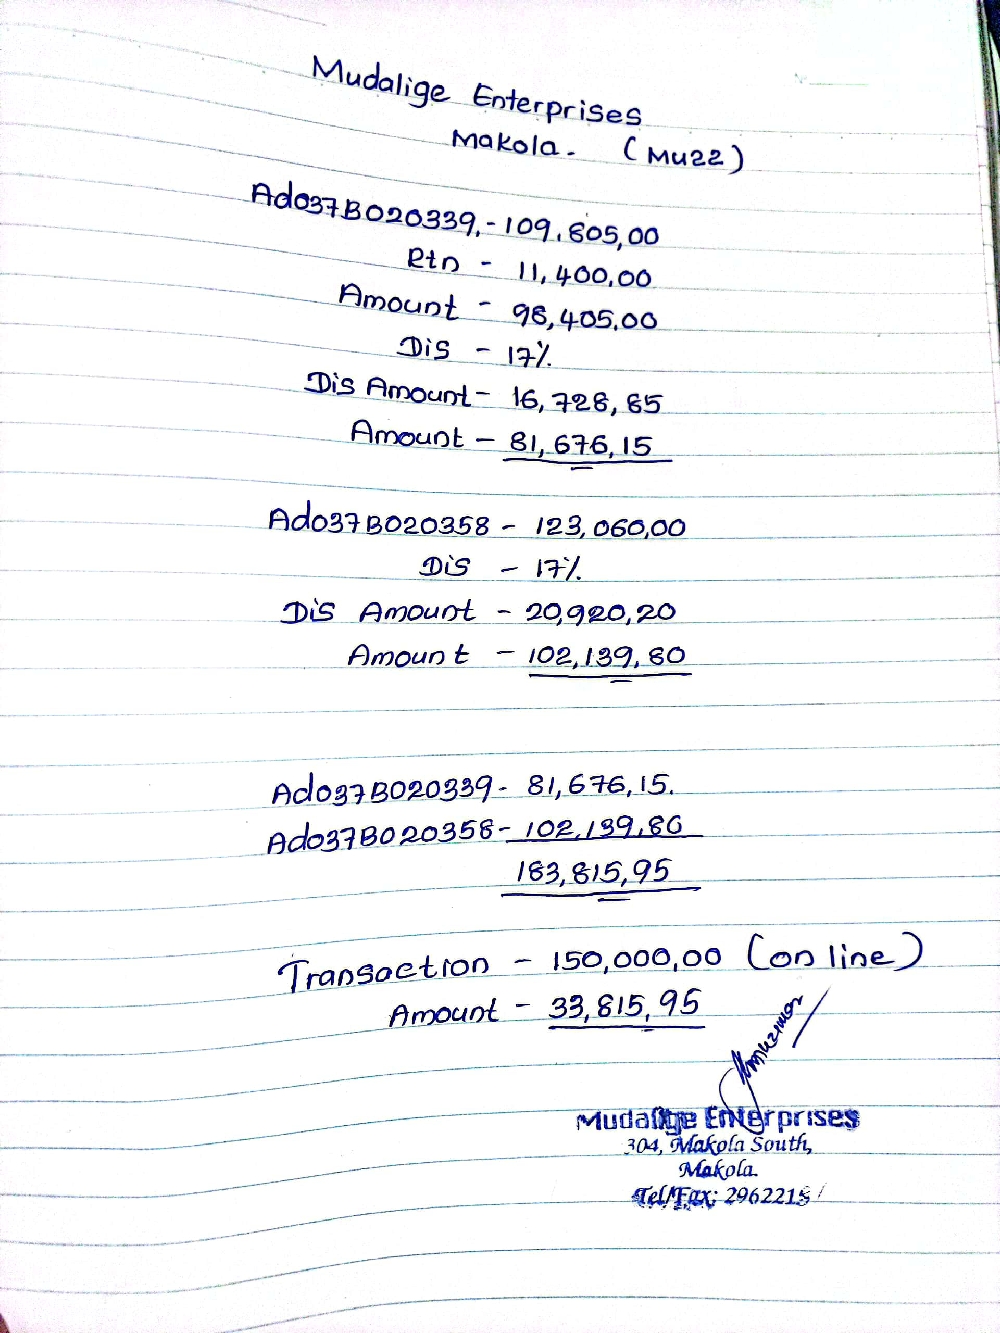 Mudalige Enterprises
Makola. (Mu22)
Ado37B020339,- 109,805,00
Rtn - 11,400,00
Amount - 98,405,00
Dis - 17%
Dis Amount - 16,728,85
Amount - 81,676,15
Ado37B020358 - 123,060,00
Dis - 17%
Dis Amount - 20,920,20
Amount - 102,139,80
Ado37B020339 - 81,676,15.
Ado37B020358 - 102,139,80
183,815,95
Transaction - 150,000,00 (on line)
Amount - 33,815,95
Mudalige Enterprises
304, Makola South,
Makola.
Tel/Fax: 2962215